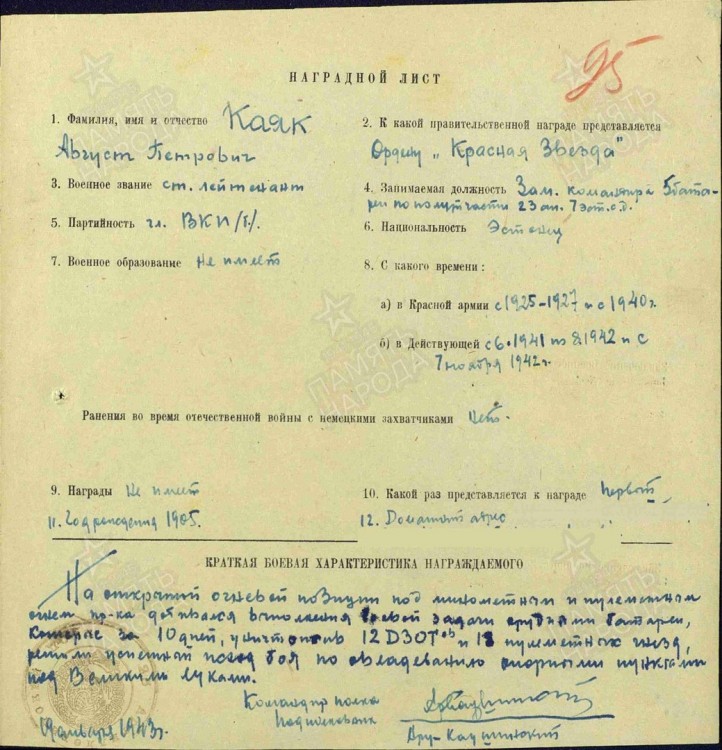 95
НАГРАДНОЙ ЛИСТ
1. Фамилия, имя и отчество Каяк
Август Петрович
2. К какой правительственной награде представляется
Ордену „Красная Звезда"
3. Военное звание ст. лейтенант
4. Занимаемая должность Зам. командира 5 бата-
реи по полит части 23 ап. 7 эст.с.д.
5. Партийность чл. ВКП/б/.
6. Национальность Эстонец
7. Военное образование Не имеет
8. С какого времени:
а) в Красной армии с 1925-1927 и с 1940 г.
б) в Действующей с 6.1941 по 8.1942 и с
7 ноября 1942 г.
Ранения во время отечественной войны с немецкими захватчиками Нет.
9. Награды Не имеет
10. Какой раз представляется к награде первый
11. Год рождения 1905.
12. Домашний адрес
КРАТКАЯ БОЕВАЯ ХАРАКТЕРИСТИКА НАГРАЖДАЕМОГО
На открытой огневой позиции под минометным и пулеметным
огнем пр-ка добивался выполнения боевой задачи орудиями батареи,
которые за 10 дней, уничтожив 12 ДЗОТов и 18 пулеметных гнезд,
решили успешный исход боя по овладеванию опорными пунктами
под Великими Луками.
Командир полка
Подполковник
19 января 1943 г.
Ару-Каушинский
ПАМЯТЬ НАРОДА